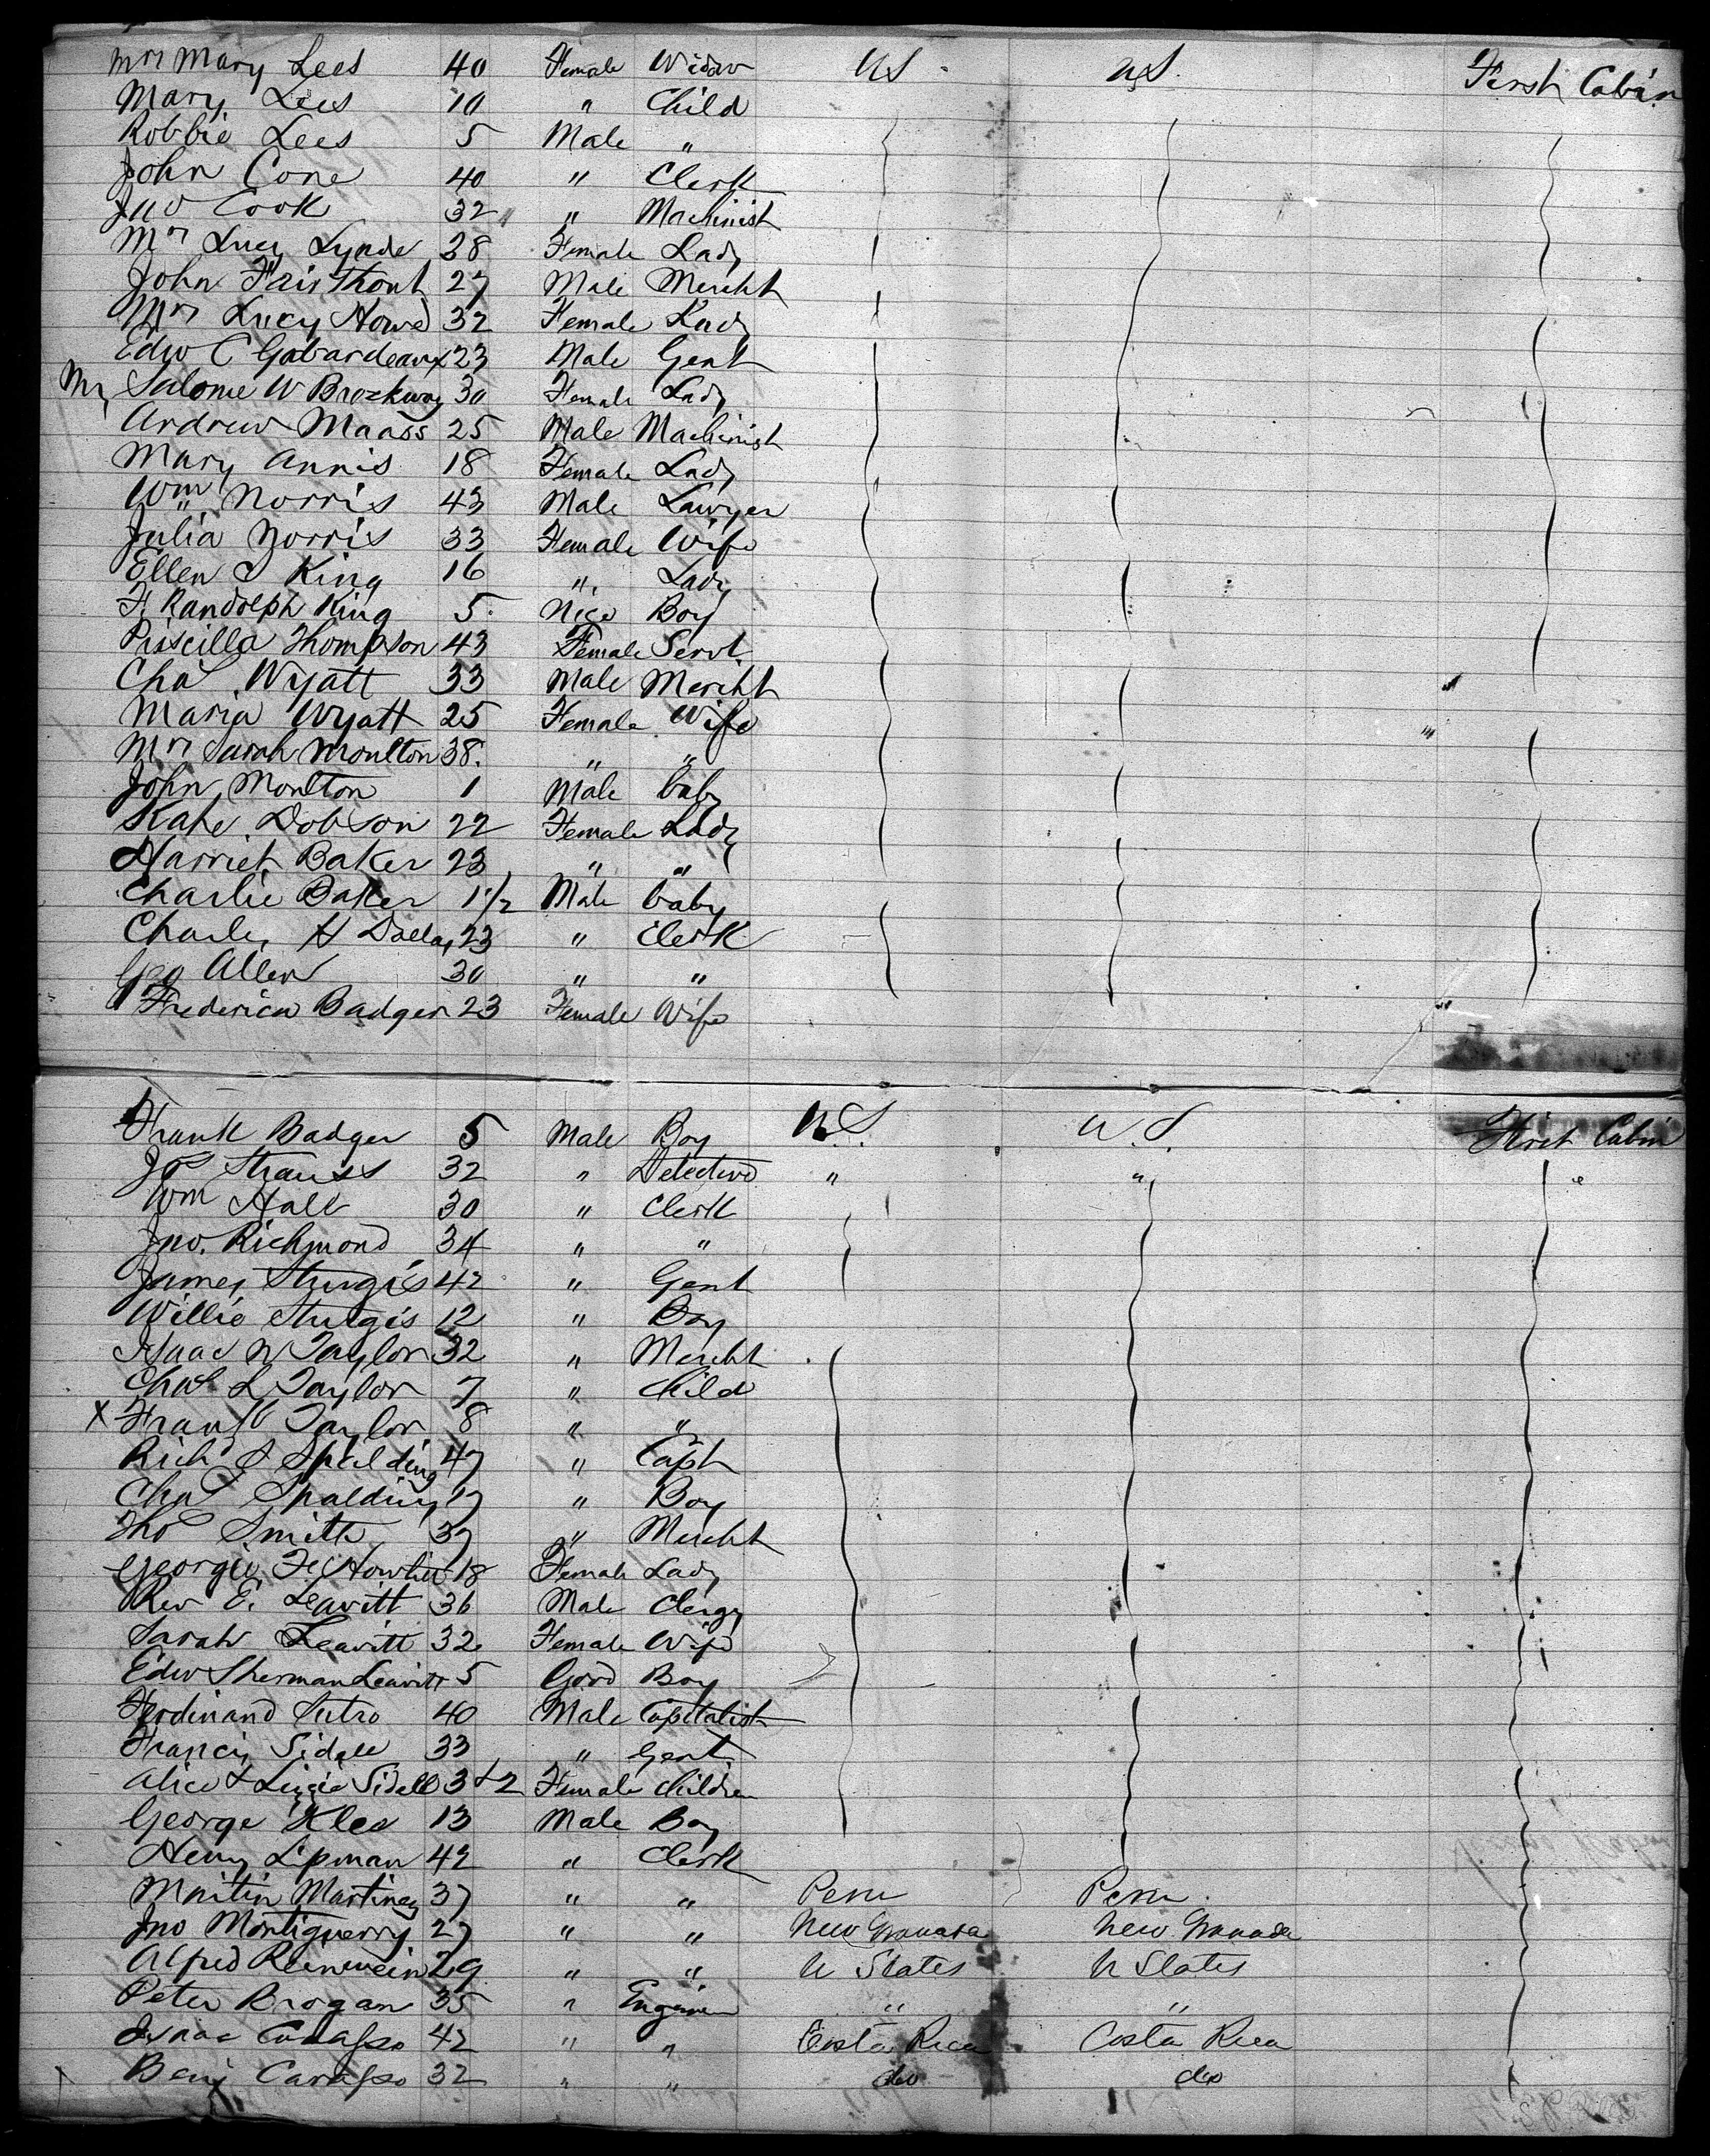 Mrs Mary Lees 40 Female Widow U S. U S. First Cabin
Mary Lees 10 " Child
Robbie Lees 5 Male "
John Cone 40 " Clerk
Jno Cook 32 " Machinist
Mrs Lucy Lynde 38 Female Lady
John Fairthont 27 Male Mercht
Mrs Lucy Howe 32 Female Lady
Edw C Gabardeaux 23 Male Gent
Mrs Salome W Brockway 30 Female Lady
Andrew Maass 25 Male Machinist
Mary Annis 18 Female Lady
Wm Norris 43 Male Lawyer
Julia Norris 33 Female Wife
Ellen S King 16 " Lady
F. Randolph King 5 Nice Boy
Priscilla Thompson 43 Female Servt
Chas Wyatt 33 Male Mercht
Maria Wyatt 25 Female Wife
Mrs Sarah Moulton 38. " "
John Moulton 1 Male baby
Kate Dobson 22 Female Lady
Harriet Baker 23 " "
Charlie Baker 1 1/2 Male baby
Charles H 23 " Clerk
Geo Allen 30 " "
Frederica Badger 23 Female Wife
Frank Badger 5 Male Boy U S. U. S. First Cabin
Jos Strauss 32 " Detective " "
Wm Hall 30 " Clerk
Jno. Richmond 34 " "
James Sturgis 42 " Gent
Willie Sturgis 12 " Boy
Isaac W Taylor 32 " Mercht
Chas L Taylor 7 " Child
x Frank Taylor 8 " "
Richd S Spalding 47 " Capt
Chas Spalding 17 " Boy
Thos Smith 37 " Mercht
Georgie 18 Female Lady
Rev E. Leavitt 36 Male Clergy
Sarah Leavitt 32 Female Wife
Edw Sherman Leavitt 5 Good Boy
Ferdinand Sutro 40 Male Capitalist
Francis Sidell 33 " Gent
Alice & Lizzie Sidell 3 & 2 Female Children
George Klee 13 Male Boy
Henry Lipman 42 " Clerk
Martin Martinez 37 " " Peru Peru
Jno Montiguerry 27 " " New Granada New Granada
Alfred Reinwein 29 " " U States U States
Peter Brogan 35 " Engineer " "
Isaac Carasso 42 " " Costa Rica Costa Rica
Benj Carasso 32 " " do do